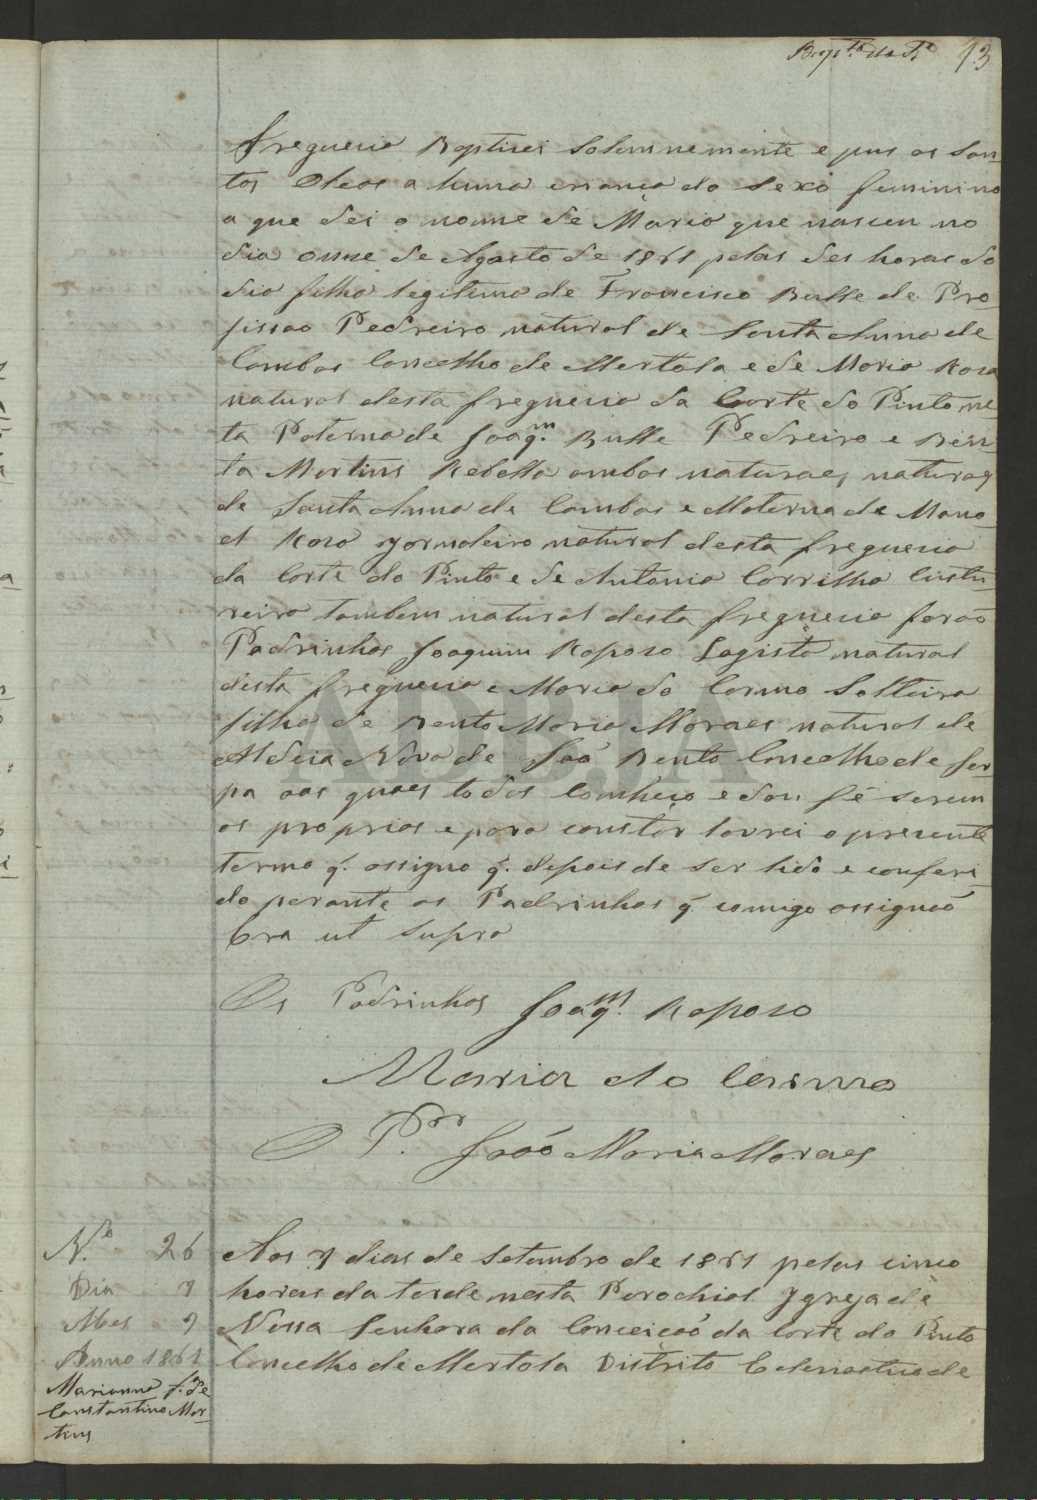 13
freguesia Baptisei Solemnemente e pus os San
tos Oleos a huma criança do Sexo feminino
a que dei o nome de Maria que nasceu no
dia onse de Agosto de 1861 pelas des horas do
dia filha legitima de Francisco Bulle de Pro
fissão Pedreiro natural de Santa Anna de
Cambas Concelho de Mertola e de Maria Rosa
natural desta freguesia da Corte do Pinto ne
ta Paterna de Joaqm. Bulle Pedreiro e Ben
ta Martins Rebolla ambos naturaes naturaes
de Santa Anna de Cambas e Materna de Mano
el Roso Jornaleiro natural desta freguesia
da Corte do Pinto e de Antonia Carrilha Custu
reira tambem natural desta freguesia forão
Padrinhos Joaquim Raposo Logista natural
desta freguesia e Maria do Carmo Solteira
filha de Bento Maria Moraes natural de
Aldeia Nova de São Bento Concelho de Ser
pa aos quaes todos Conheço e dou fé serem
os proprios e para constar lavrei o presente
termo q. assigno q. depois de ser lido e conferi
do perante os Padrinhos q. comigo assignão
Era ut supra
Os Padrinhos Joaqm. Raposo
Maria do Carmo
O Pror. João Maria Moraes
N.º 26
Dia 7
Mes 9
Anno 1861
Marianna f.ª de
Constantino Mar
tins
Aos 7 dias de Setembro de 1861 pelas cinco
horas da tarde nesta Parochial Ygreja de
Nossa Senhora da Conceição da Corte do Pinto
Concelho de Mertola Distrito Eclesiastico de
ADBJA